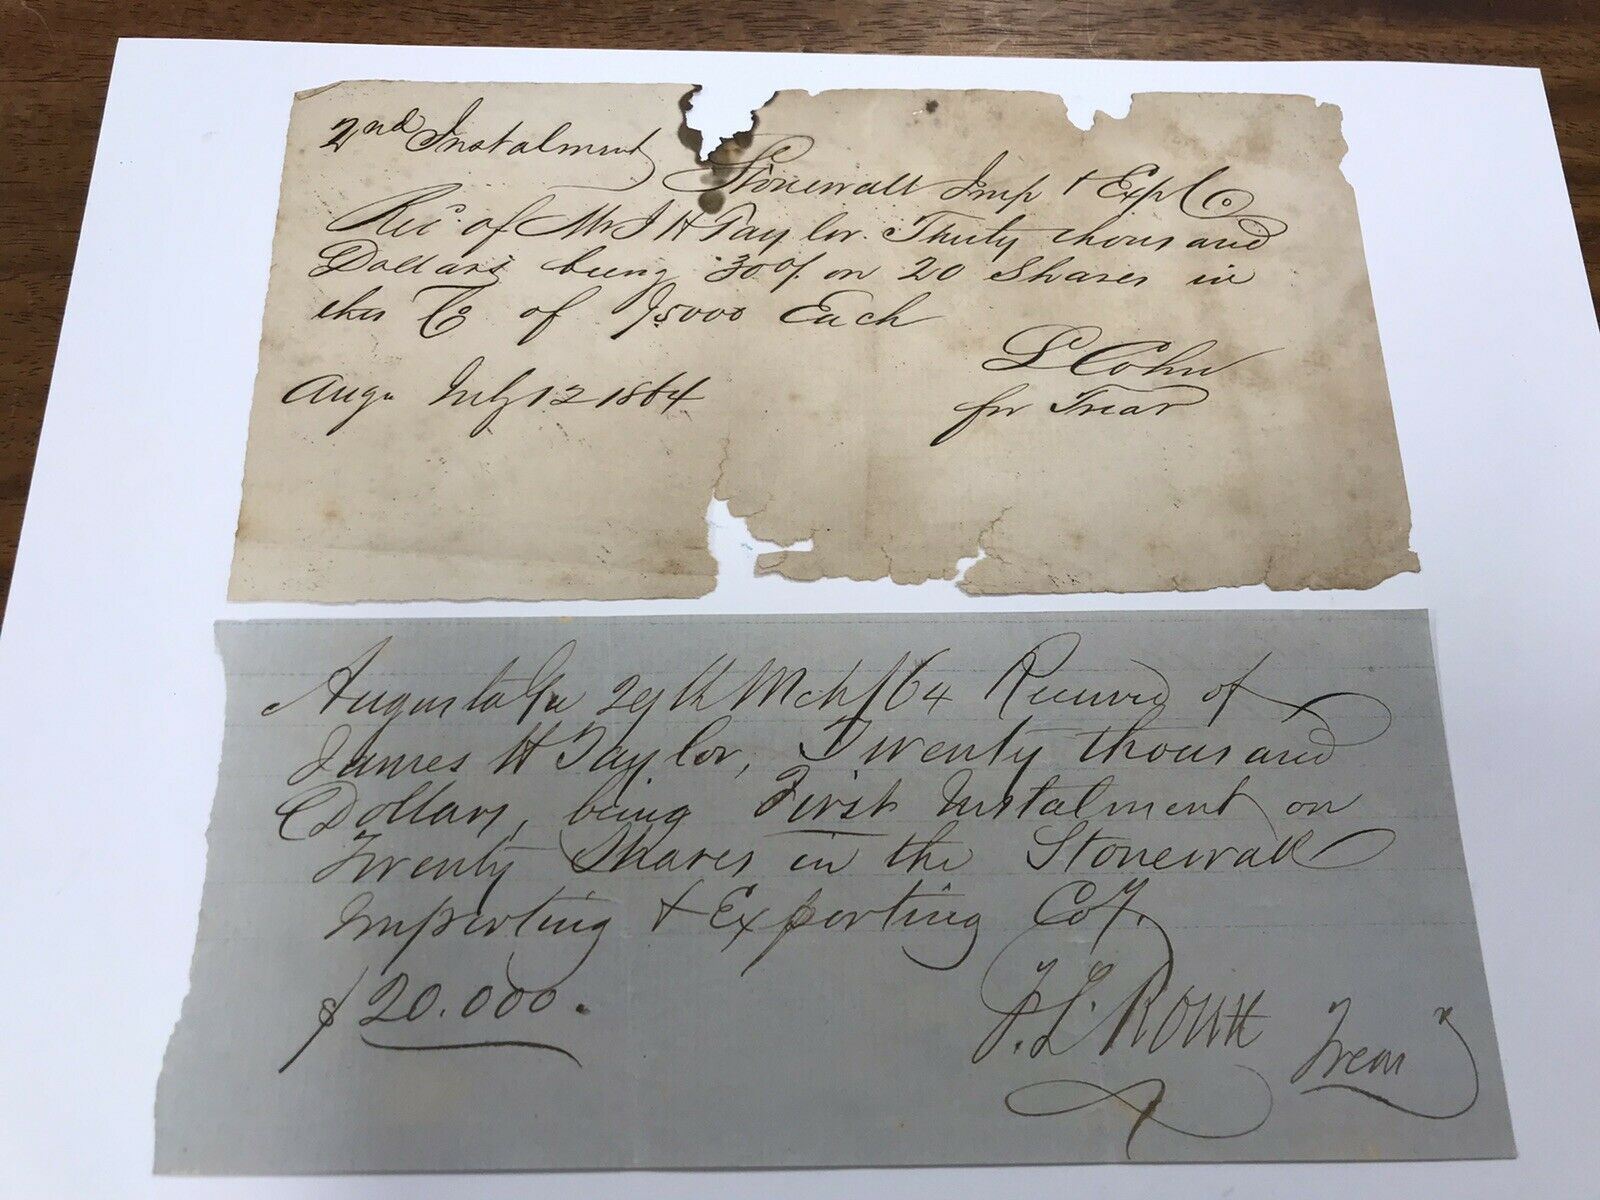 2nd Instalment
Stonewall Imp & Exp Co
Rec of Mr J H Taylor Thirty thousand
Dollars being 30% on 20 Shares in
this Co of $5000 Each
L Cohn
for Trear
Auga July 12 1864
Augusta Ga 29th Mch /64 Received of
James H Taylor, Twenty thousand
Dollars, being First Instalment on
Twenty Shares in the Stonewall
Importing & Exporting Coy.
$20.000.
F. L. Roux Trear